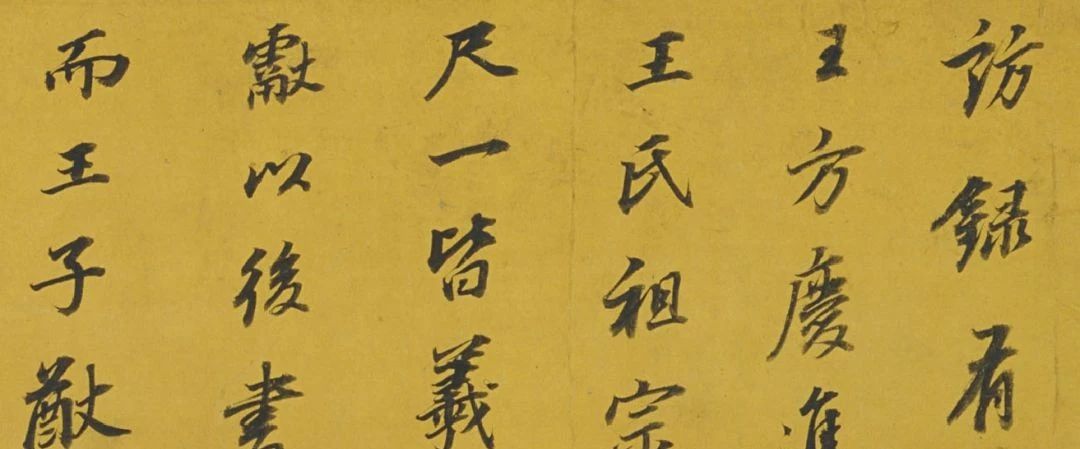 訪録有
王方慶進
王氏祖宗
尺一皆羲
獻以後書
而王子猷